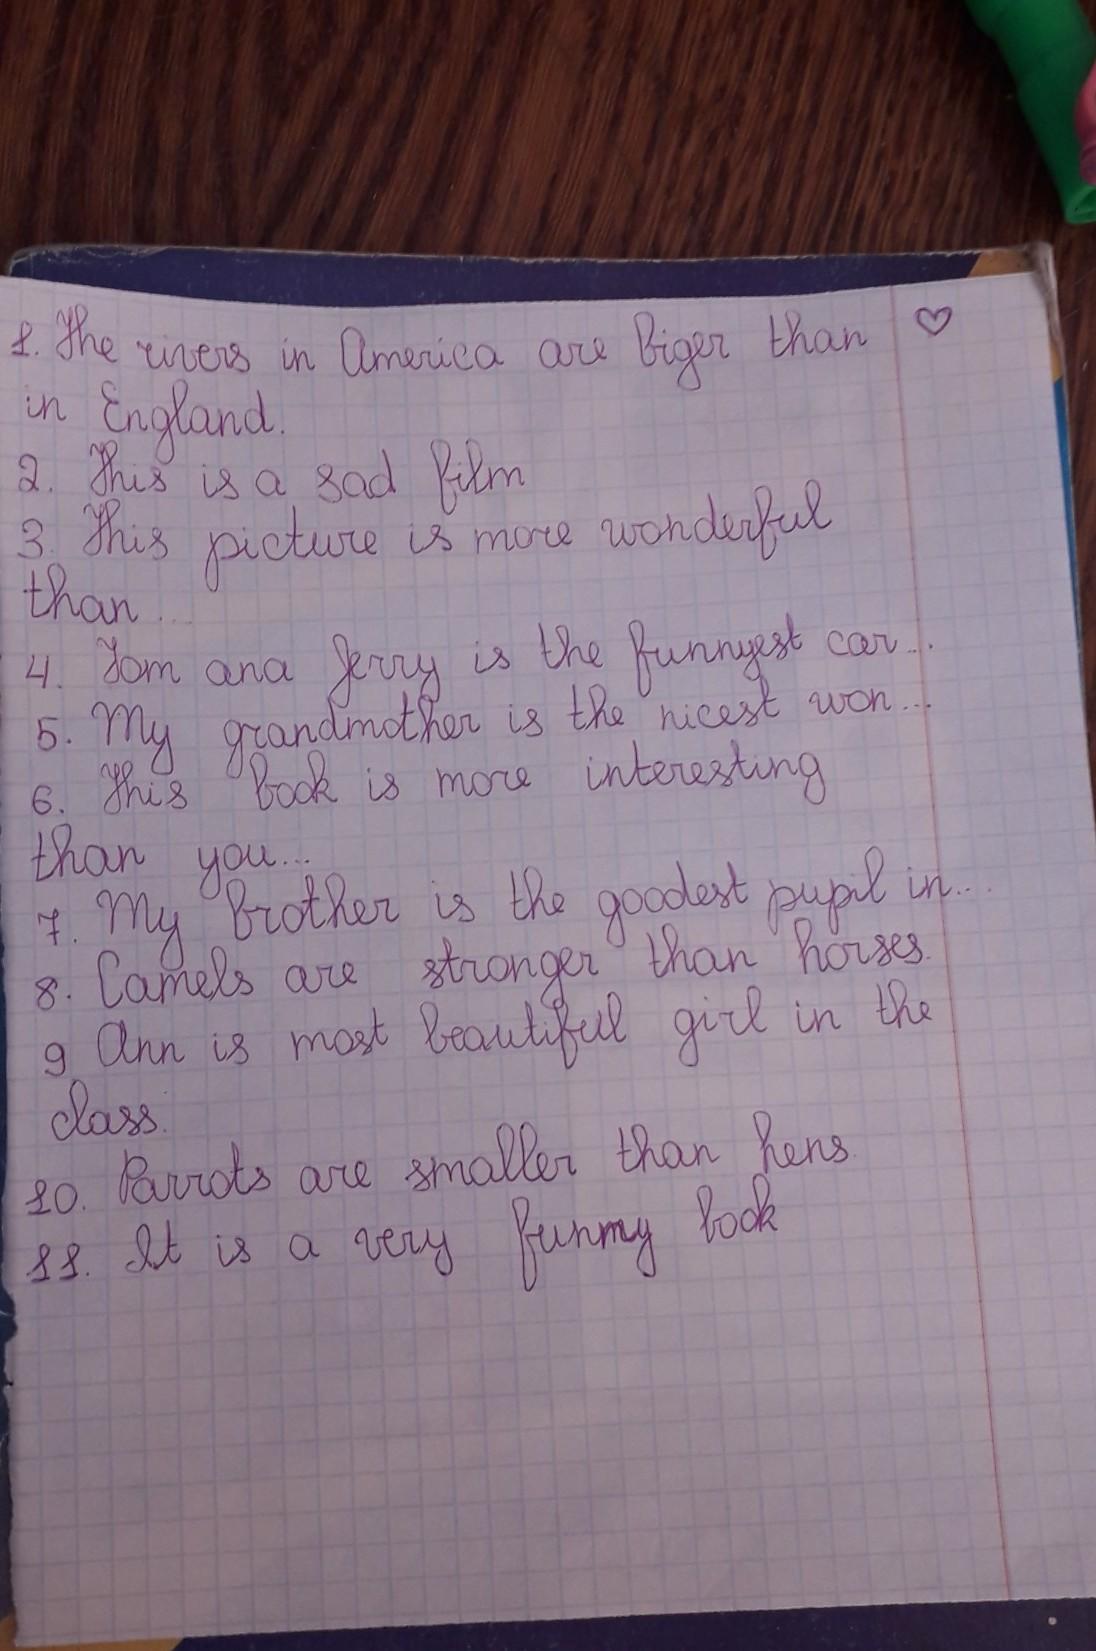 1. The rivers in America are biger than
in England.
2. This is a sad film
3. This picture is more wonderful
than...
4. Tom ana Jerry is the funnyest car...
5. My grandmother is the nicest won...
6. This book is more interesting
than you...
7. My brother is the goodest pupil in...
8. Camels are stronger than horses.
9 Ann is most beautiful girl in the
class.
10. Parrots are smaller than hens.
11. It is a very funmy book